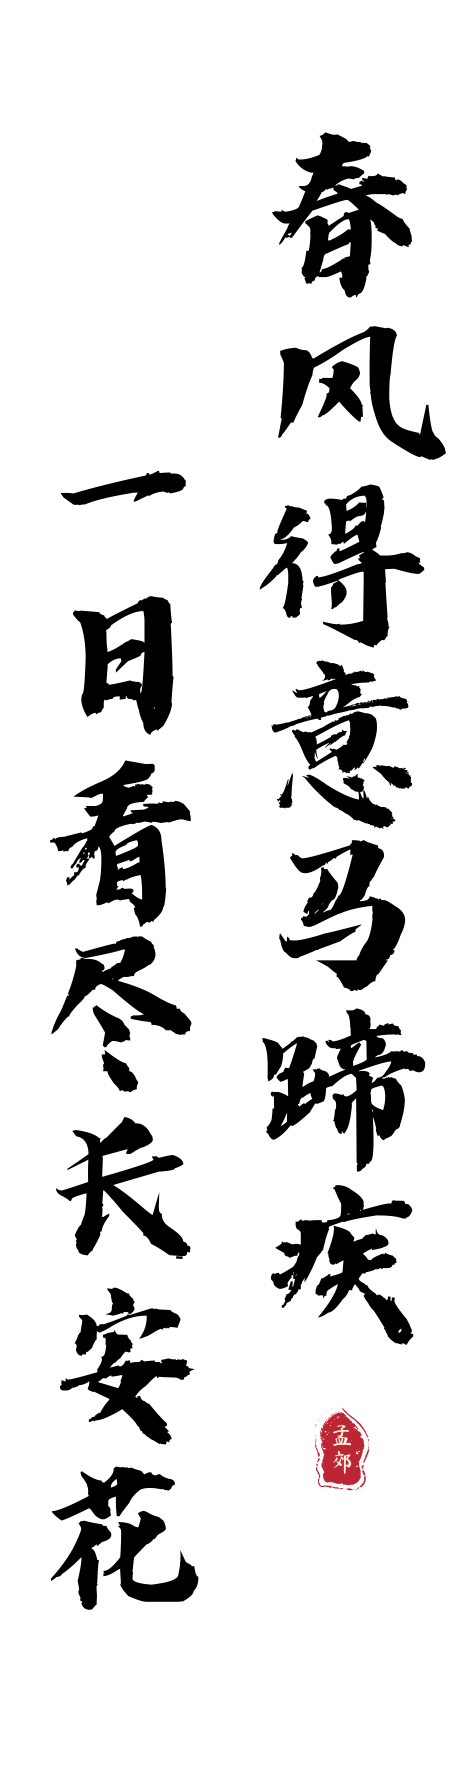 春风得意马蹄疾
孟郊
一日看尽长安花